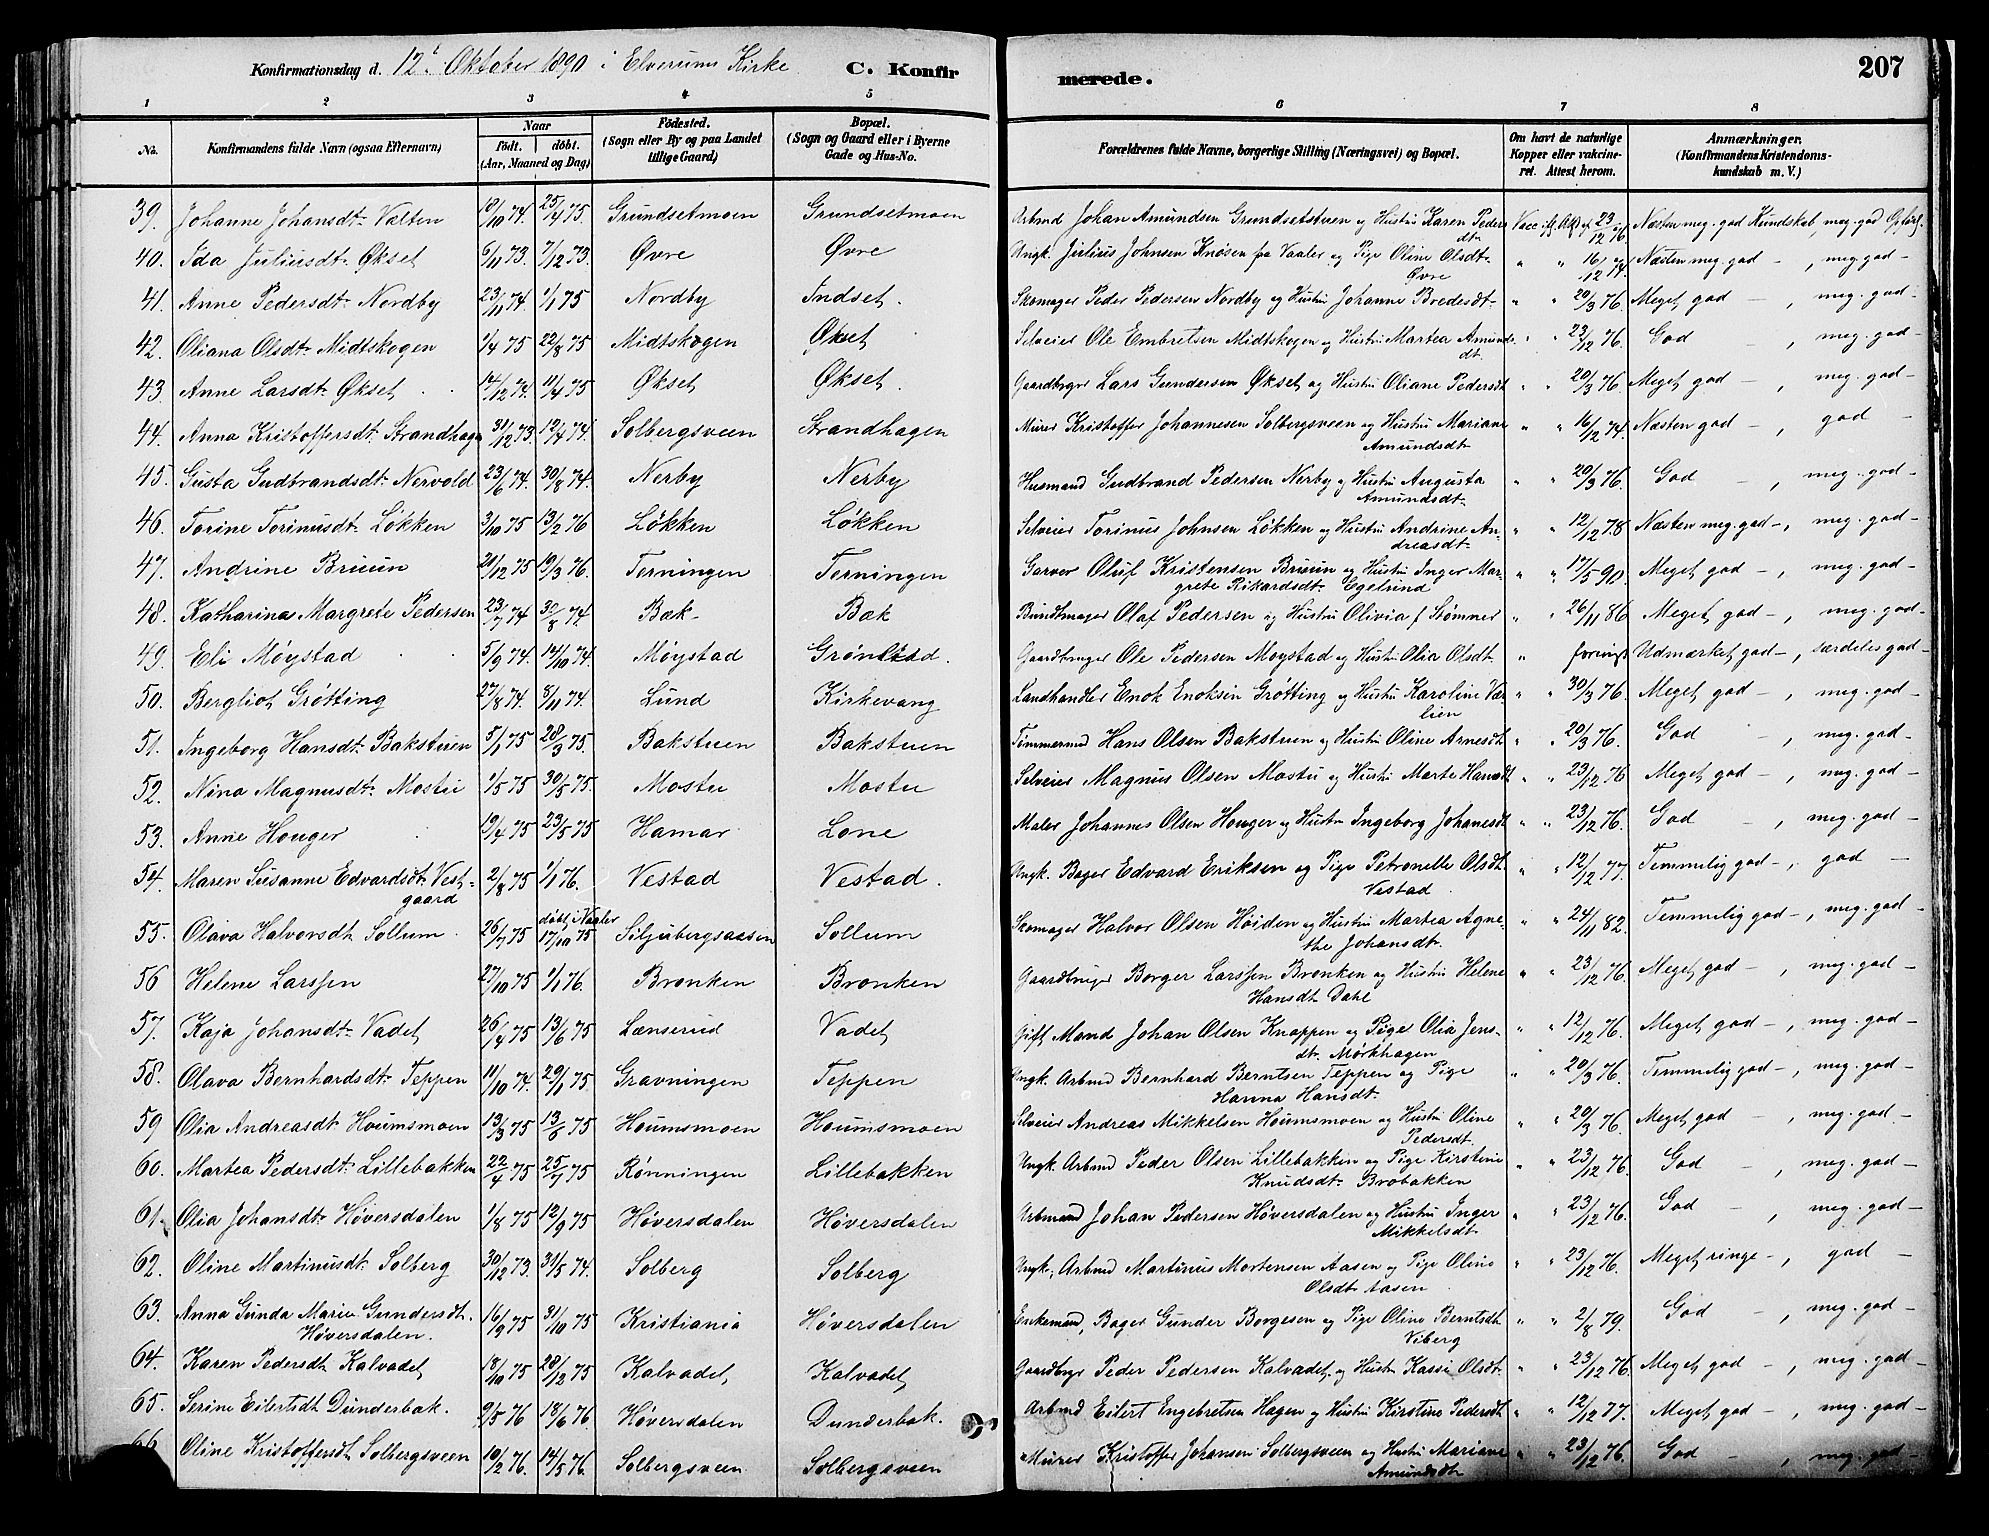 Konfirmationsdag d. 12te Oktober 1890 i Elverums Kirke C. Konfirmerede. 207
1 2 3 4 5 6 7 8
No. Konfirmandens fulde Navn (ogsaa Efternavn) Naar Født. døbt. (Aar, Maaned og Dag) Fødested. (Sogn eller By og paa Landet tillige Gaard) Bopæl. (Sogn og Gaard eller i Byerne Gade og Hus-No. Forældrenes fulde Navne, borgerlige Stilling (Næringsvei) og Bopæl. Om havt de naturlige Kopper eller vakcineret. Attest herom. Anmærkninger. (Konfirmandens Kristendomskundskab m. V.)
39. Johanne Johansdt. Valten 18/10 74. 25/4 75. Grundsetmoen Grundsetmoen Arbmd Johan Amundsen Grundsetstuen og Hustru Karen Pedersdt. Vacc. 23/12 76. Næsten meg. god Kundskab meg. god
40. Ida Juliusdt. Økset 6/11 73. 7/12 73. Øvre Øvre Ungk. Julius Johnsen Knøsen fra Vaaler og Pige Oline Olsdt. Øvre " " 16/12 74. Næsten meg. god — , meg. god —
41. Anne Pedersdt. Nordby 23/11 74. 1/1 75 Nordby Indset. Skomager Peder Pedersen Nordby og Hustru Johanne Bredesdt. " " 20/3 76. Meget god — , meg. god —
42. Oliana Olsdt. Midtskogen 1/4 75 22/8 75 Midtskogen Økset Selveier Ole Embretsen Midtskogen og Hustru Martea Amundsdt. " " 23/12 76. God — , meg. god —
43. Anne Larsdt. Økset 14/12 74. 11/4 75 Økset Økset. Gaardbruger Lars Gundersen Økset og Hustru Oliane Pedersdt " " 20/3 76. Meget god — , meg. god —
44. Anna Kristoffersdt. Strandhagen 31/12 73. 12/4 74. Solbergsveen Strandhagen Murer Kristoffer Johannesen Solbergsveen og Hustru Mariane Amundsdt " " 16/12 74. Næsten god — , god —
45. Gusta Gudbrandsdt. Nervold 23/6 74. 30/8 74. Nerby Nerby Husmand Gudbrand Pedersen Nerby og Hustru Augusta Amundsdt. " " 20/3 76. God — , meg. god —
46. Torine Torinusdt. Løkken 3/10 75 13/2 76 Løkken Løkken Selveier Torinus Johnsen Løkken og Hustru Andrine Andreasdt. " " 12/12 78 Næsten meg. god — , meg. god —
47. Andrine Bruun 21/12 75 19/3 76. Terningen Terningen Garver Oluf Kristensen Bruun og Hustru Inger Margrete Rikardsdt. Egelund " " 17/5 90. Meget god — , meg. god —
48. Katharina Margrete Pedersen 23/7 74 30/8 74. Bæk Bæk Bundtmager Olaf Pedersen og Hustru Olivia f Stømner " " 26/11 86 Meget god — , meg. god —
49. Eli Møystad 5/9 74. 14/10 74. Møystad Grønstad. Gaardbruger Ole Pedersen Moystad og Hustru Olia Olsdt. " Udmærket god — , særdeles god —
50. Bergliot Grøtting 27/8 74. 8/11 74. Lund Kirkevang Landhandler Enok Enoksen Grøtting og Hustru Karoline Vælien " " 30/3 76. Meget god — , meg. god —
51. Ingeborg Hansdt. Bakstuen 5/1 75 28/3 75. Bakstuen Bakstuen Tømmermd Hans Olsen Bakstuen og Hustru Oline Arnesdt " " 20/3 76. God — , meg. god —
52. Nina Magnusdt. Mostu 1/5 75 30/5 75. Mostu Mostu Selveier Magnus Olsen Mostu og Hustru Marte Hansdt " " 23/12 76 Meget god — , meg. god —
53. Anne Houger 19/4 75 23/5 75 Hamar Lone Maler Johannes Olsen Houger og Hustru Ingeborg Johanesdt " " 23/12 76. God — , meg. god —
54. Maren Susanne Edvardsdt. Vestgaard 2/8 75 1/1 76. Vestad Vestad. Ungk. Bager Edvard Eriksen og Pige Petronelle Olsdt. Vestad " " 12/12 77. Temmelig god — , god —
55. Olava Halvorsdt. Sollum 26/7 75 døbt i Vaaler 17/10 75 Siljubergsaasen Sollum Skomager Halvor Olsen Høiden og Hustru Martea Agnethe Johansdt. " " 24/11 82. Temmelig god — , meg. god —
56 Helene Larssen 27/10 75 1/1 76. Bronken Bronken Gaardbruger Borger Larssen Bronken og Hustru Helene Hansdt Dahl " " 23/12 76. Meget god — , meg. god —
57. Kaja Johansdt. Vadet 26/4 75 13/6 75 Lænserud Vadet Gift Mand Johan Olsen Knappen og Pige Olia Jensdt. Mørkhagen " " 12/12 76. Meget god — , meg. god —
58. Olava Bernhardsdt. Teppen 11/10 74. 29/1 75 Gravningen Teppen Ungk. Arbmd Bernhard Berntsen Teppen og Pige Hanna Hansdt. " " 20/3 76. Temmelig god — , meg. god —
59 Olia Andreasdt Houmsmoen 13/3 75 13/6 75 Houmsmoen Houmsmoen Selveier Andreas Mikkelsen Houmsmoen og Hustru Oline Pedersdt. " " 20/3 76. Meget god — , meg. god —
60. Martea Pedersdt. Lillebakken 22/4 75 25/7 75 Rønningen Lillebakken Ungk. Arbmd Peder Olsen Lillebakken og Pige Kirstine Knudsdt. Brobakken " " 23/12 76. God — , meg. god —
61. Olia Johansdt. Høversdalen 1/8 75 12/9 75 Høversdalen Høversdalen Arbmand Johan Pedersen Høversdalen og Hustru Inger Mikkelsdt. " " 23/12 76. God — , meg. god —
62. Oline Martinusdt. Solberg 30/12 73. 31/5 74. Solberg Solberg Ungk., Arbmd Martinus Mortensen Aasen og Pige Oline Olsdt. Aasen " " 23/12 76. Meget ringe — , god —
63. Anna Gunda Marie Gundersdt. Høversdalen. 16/9 75 31/10 75 Kristiania Høversdalen Enkemand, Bager Gunder Borgesen og Pige Oline Berntsdt Viberg " " 2/8 79. God — , meg. god —
64. Karen Pedersdt. Kalvadet 18/10 75 28/12 75 Kalvadet Kalvadet Gaardbruger Peder Pedersen Kalvadet og Hustru Kassi Olsdt. " " 23/12 76. Meget god — , meg. god —
65. Serine Eilertsdt Dunderbæk. 9/5 76 18/6 76. Høversdalen Dunderbæk. Arbmd Eilert Engebretsen Hagen og Hustru Kirstine Pedersdt " " 12/12 77. Meget god — , meg. god —
66. Oline Kristoffersdt Solbergsveen 10/2 76. 14/5 76. Solbergsveen Solbergsveen Murer Kristoffer Johansen Solbergsveen og Hustru Mariane Amundsdt " " 23/12 76. God — , meg. god —